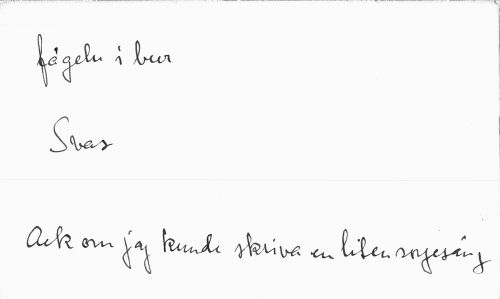 fågeln i bur
Svar
Ack om jag kunde skriva en liten sorgesång